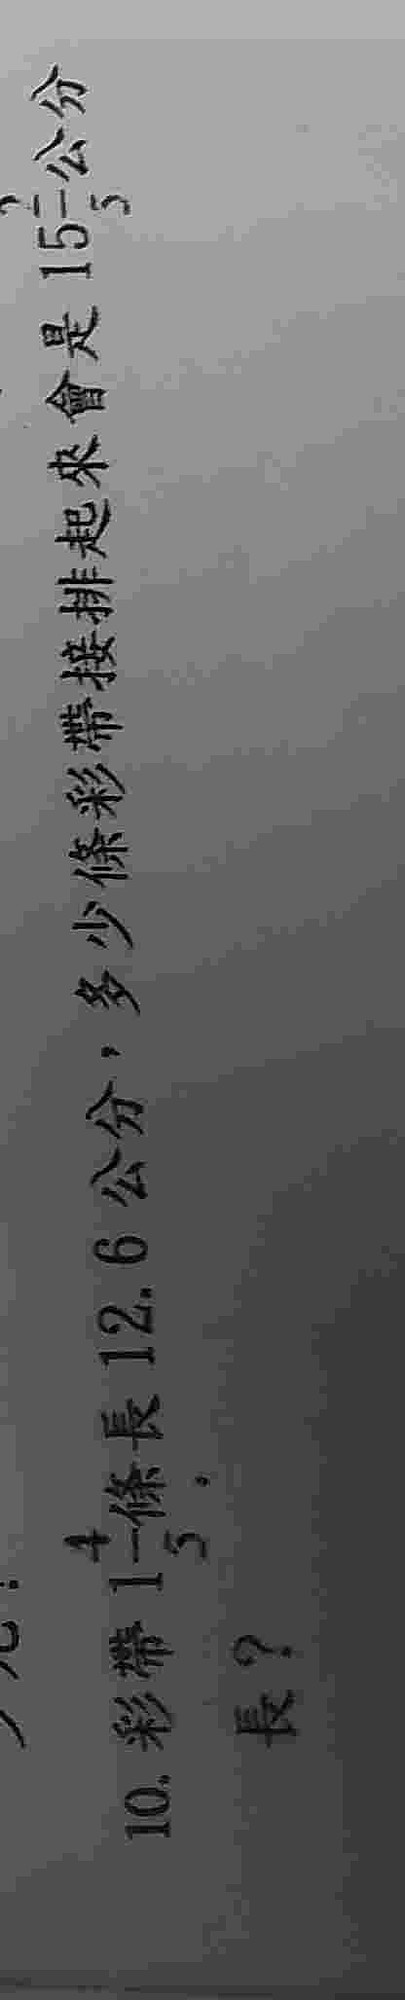 10. 彩帶 1 4/5 條長 12.6 公分，多少條彩帶接排起來會是 15 /5 公分
長？